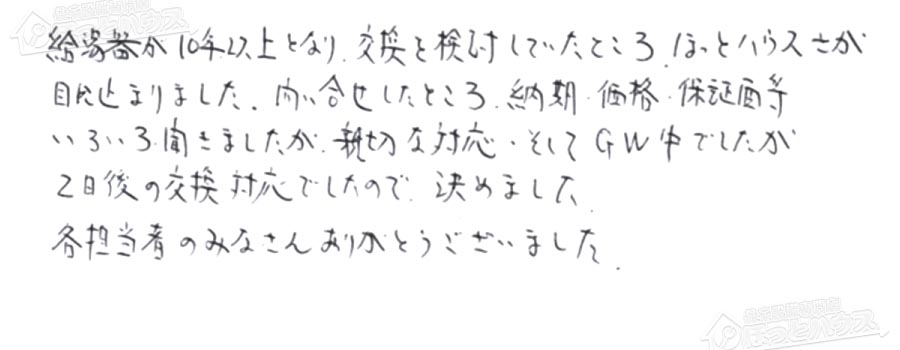 給湯器が10年以上となり、交換を検討していたところ、ほっとハウスさが
目に止まりました。問い合せしたところ、納期・価格・保証面等
いろいろ聞きましたが、親切な対応・そしてGW中でしたが
2日後の交換対応でしたので、決めました。
各担当者のみなさんありがとうございました。
ほっとハウス